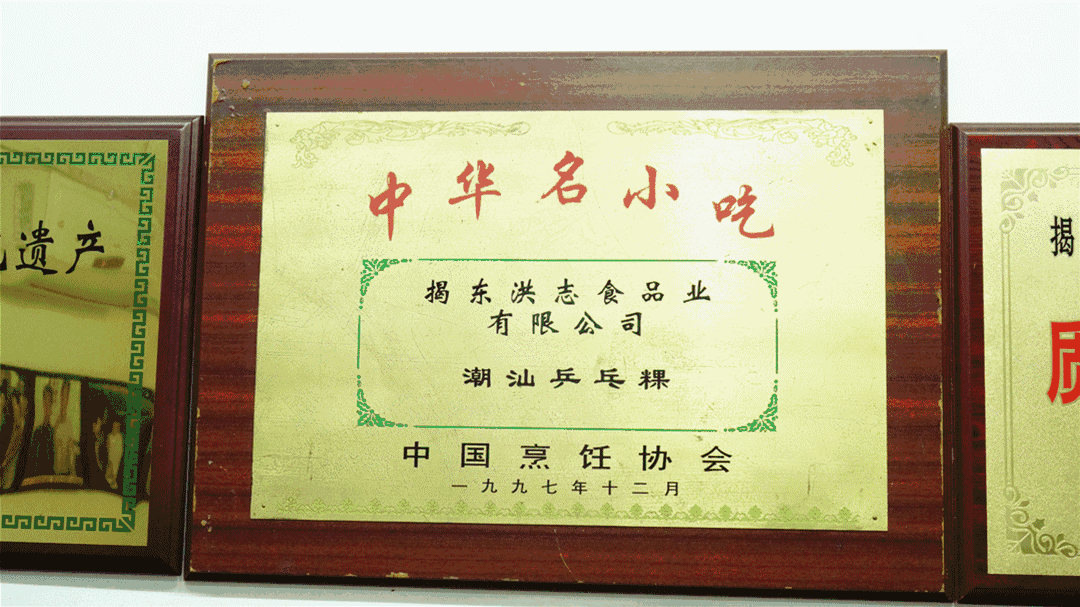 遗产
中华名小吃
揭东洪志食品业
有限公司
潮汕乒乓粿
中国烹饪协会
一九九七年十二月
揭
质